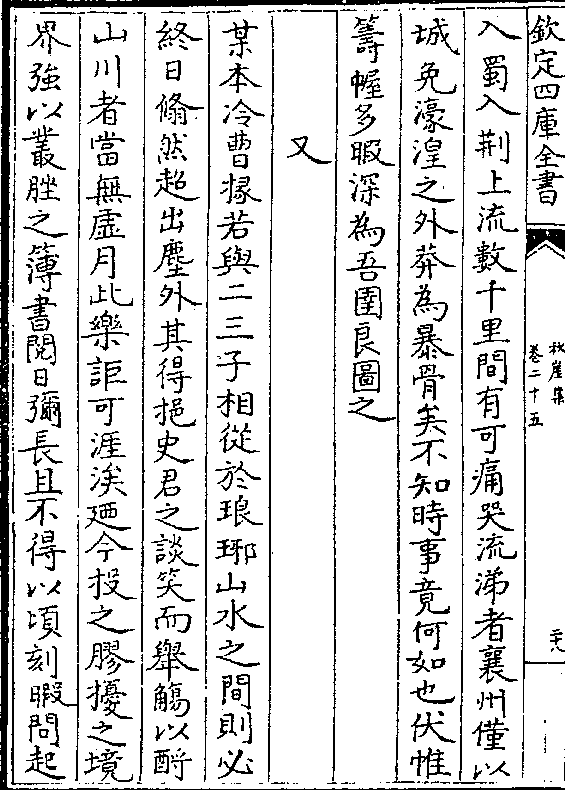 欽定四庫全書
秋崖集
卷二十五
二十八
入蜀入荆上流數千里間有可痛哭流涕者襄州僅以
城免濠湟之外莽為暴骨矣不知時事竟何如也伏惟
籌幄多暇深為吾圉良圖之
又
某本冷曹掾若與二三子相從於琅琊山水之間則必
終日翛然超出塵外其得挹史君之談笑而舉觴以酹
山川者當無虚月此樂詎可涯涘廼今投之膠擾之境
界強以叢脞之簿書閲日彌長且不得以頃刻暇問起